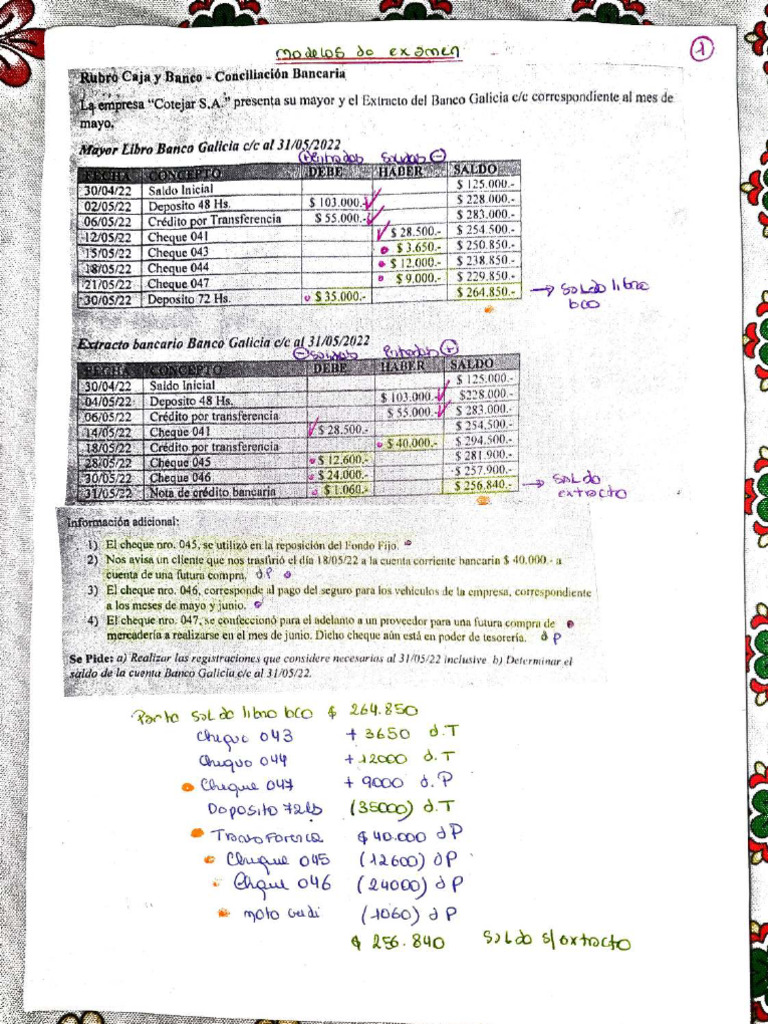 modelos de examen
1
Rubro Caja y Banco - Conciliación Bancaria
La empresa "Cotejar S.A." presenta su mayor y el Extracto del Banco Galicia c/c correspondiente al mes de
mayo.
Mayor Libro Banco Galicia c/c al 31/05/2022
(+) Entradas Salidas (-)
FECHA CONCEPTO DEBE HABER SALDO
30/04/22 Saldo Inicial $ 125.000.-
02/05/22 Deposito 48 Hs. $ 103.000.- $ 228.000.-
06/05/22 Crédito por Transferencia $ 55.000.- $ 283.000.-
12/05/22 Cheque 041 $ 28.500.- $ 254.500.-
15/05/22 Cheque 043 $ 3.650.- $ 250.850.-
18/05/22 Cheque 044 $ 12.000.- $ 238.850.-
21/05/22 Cheque 047 $ 9.000.- $ 229.850.-
30/05/22 Deposito 72 Hs. $ 35.000.- $ 264.850.- → Saldo libro
bco
Extracto bancario Banco Galicia c/c al 31/05/2022
(-) Salidas Entradas (+)
FECHA CONCEPTO DEBE HABER SALDO
30/04/22 Saldo Inicial $ 125.000.-
04/05/22 Deposito 48 Hs. $ 103.000.- $228.000.-
06/05/22 Crédito por transferencia $ 55.000.- $ 283.000.-
14/05/22 Cheque 041 $ 28.500.- $ 254.500.-
18/05/22 Crédito por transferencia $ 40.000.- $ 294.500.-
28/05/22 Cheque 045 $ 12.600.- $ 281.900.-
30/05/22 Cheque 046 $ 24.000.- $ 257.900.-
31/05/22 Nota de crédito bancaria $ 1.060.- $ 256.840.- → Saldo
extracto
Información adicional:
1) El cheque nro. 045, se utilizó en la reposición del Fondo Fijo.
2) Nos avisa un cliente que nos trasfirió el día 18/05/22 a la cuenta corriente bancaria $ 40.000.- a
cuenta de una futura compra. d P
3) El cheque nro. 046, corresponde al pago del seguro para los vehículos de la empresa, correspondiente
a los meses de mayo y junio.
4) El cheque nro. 047, se confeccionó para el adelanto a un proveedor para una futura compra de
mercadería a realizarse en el mes de junio. Dicho cheque aún está en poder de tesorería. d P
Se Pide: a) Realizar las registraciones que considere necesarias al 31/05/22 inclusive b) Determinar el
saldo de la cuenta Banco Galicia c/c al 31/05/22.
Parto saldo libro bco $ 264.850
Cheque 043 + 3650 d.T
Cheque 044 + 12000 d.T
Cheque 047 + 9000 d.P
Deposito 72hs (35000) d.T
Transferencia $ 40.000 d P
Cheque 045 (12600) d P
Cheque 046 (24000) d P
(1060) d P
$ 256.840 Saldo s/extracto